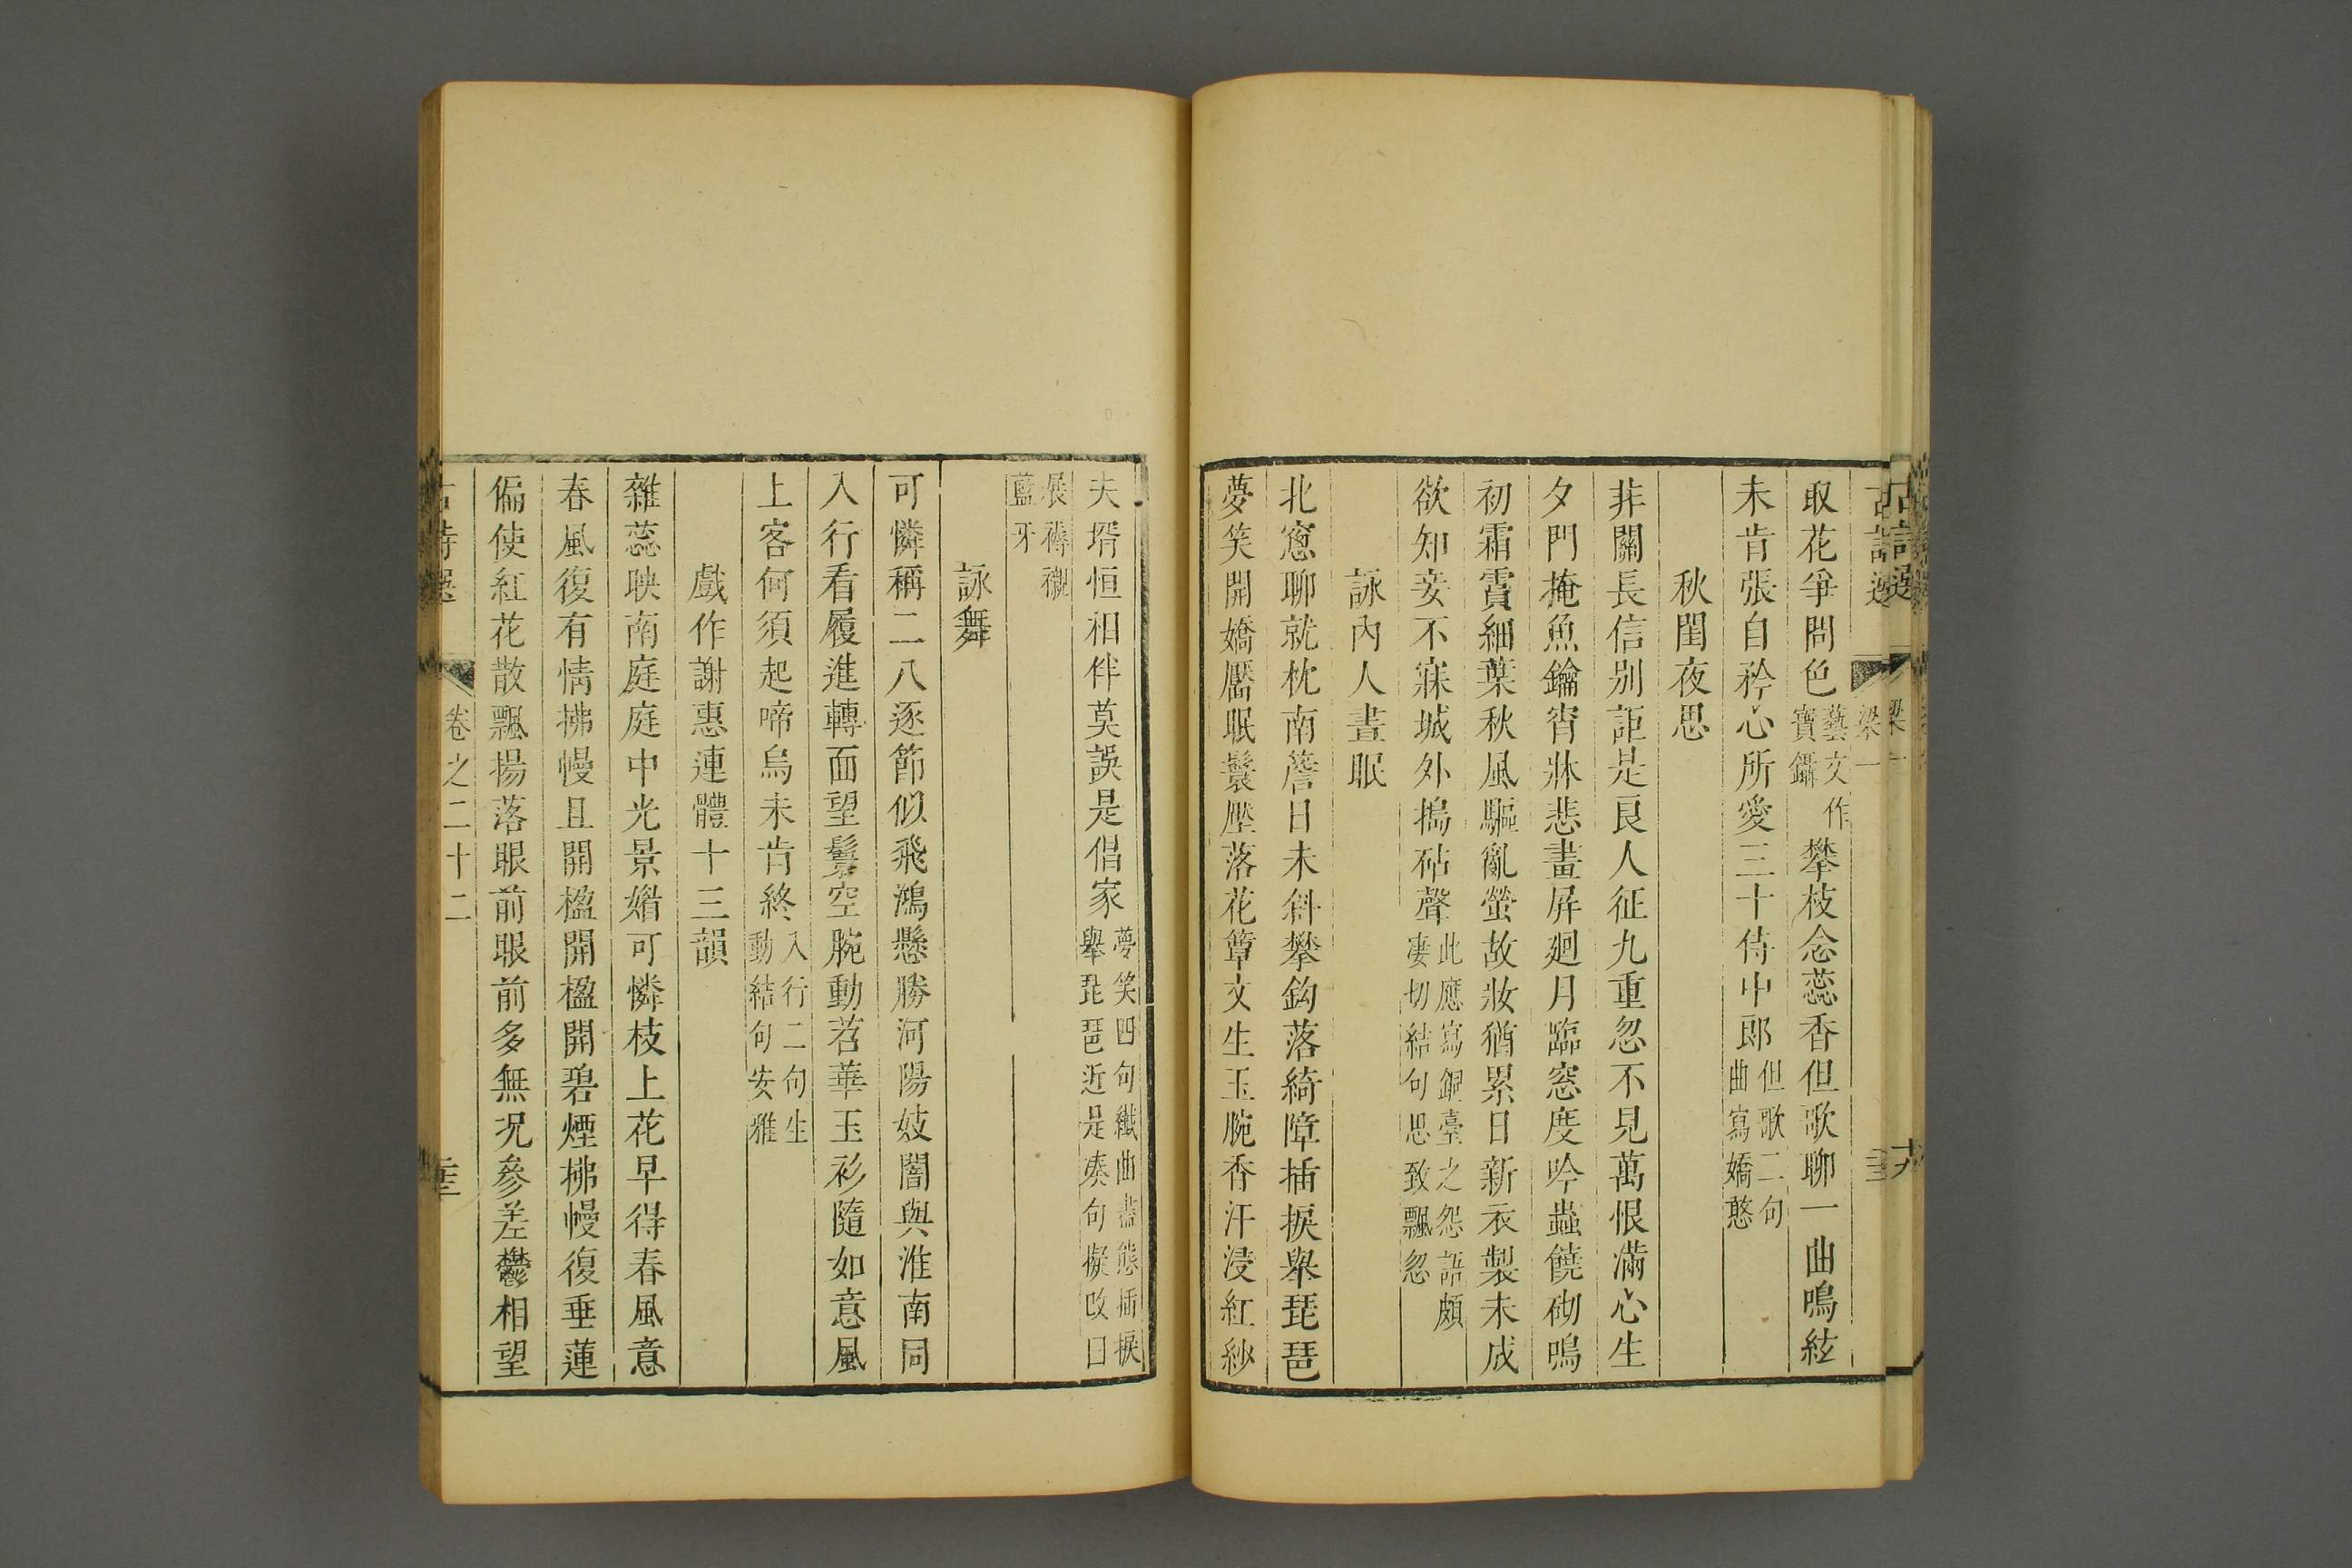 取花爭間色藝文作寶鑷攀枝念蕊香但歌聊一曲鳴絃
未肯張自矜心所愛三十侍中郎但歌二句曲寫嬌憨
秋閨夜思
非關長信別詎是良人征九重忽不見萬恨滿心生
夕門掩魚鑰宵牀悲畫屏廻月臨窓度吟蟲饒砌鳴
初霜霣細葉秋風驅亂螢故妝猶累日新衣製未成
欲知妾不寐城外搗砧聲此應寫銀臺之怨語頗凄切結句思致飄忽
詠內人晝眠
北窻聊就枕南簷日未斜攀鈎落綺障插捩舉琵琶
夢笑開嬌靨眠鬟壓落花簟文生玉腕香汗浸紅紗
夫壻恒相伴莫誤是倡家夢笑四句纖曲盡態插捩舉琵琶近是湊句擬改曰
展褥襯藍牙
詠舞
可憐稱二八逐節似飛鴻懸勝河陽妓闇與淮南同
入行看履進轉面望鬟空腕動苕華玉衫隨如意風
上客何須起啼烏未肯終入行二句生動結句安雅
戲作謝惠連體十三韻
雜蕊映南庭庭中光景媚可憐枝上花早得春風意
春風復有情拂幔且開楹開楹開碧煙拂幔復垂蓮
偏使紅花散飄揚落眼前眼前多無況參差鬱相望
卷之二十二